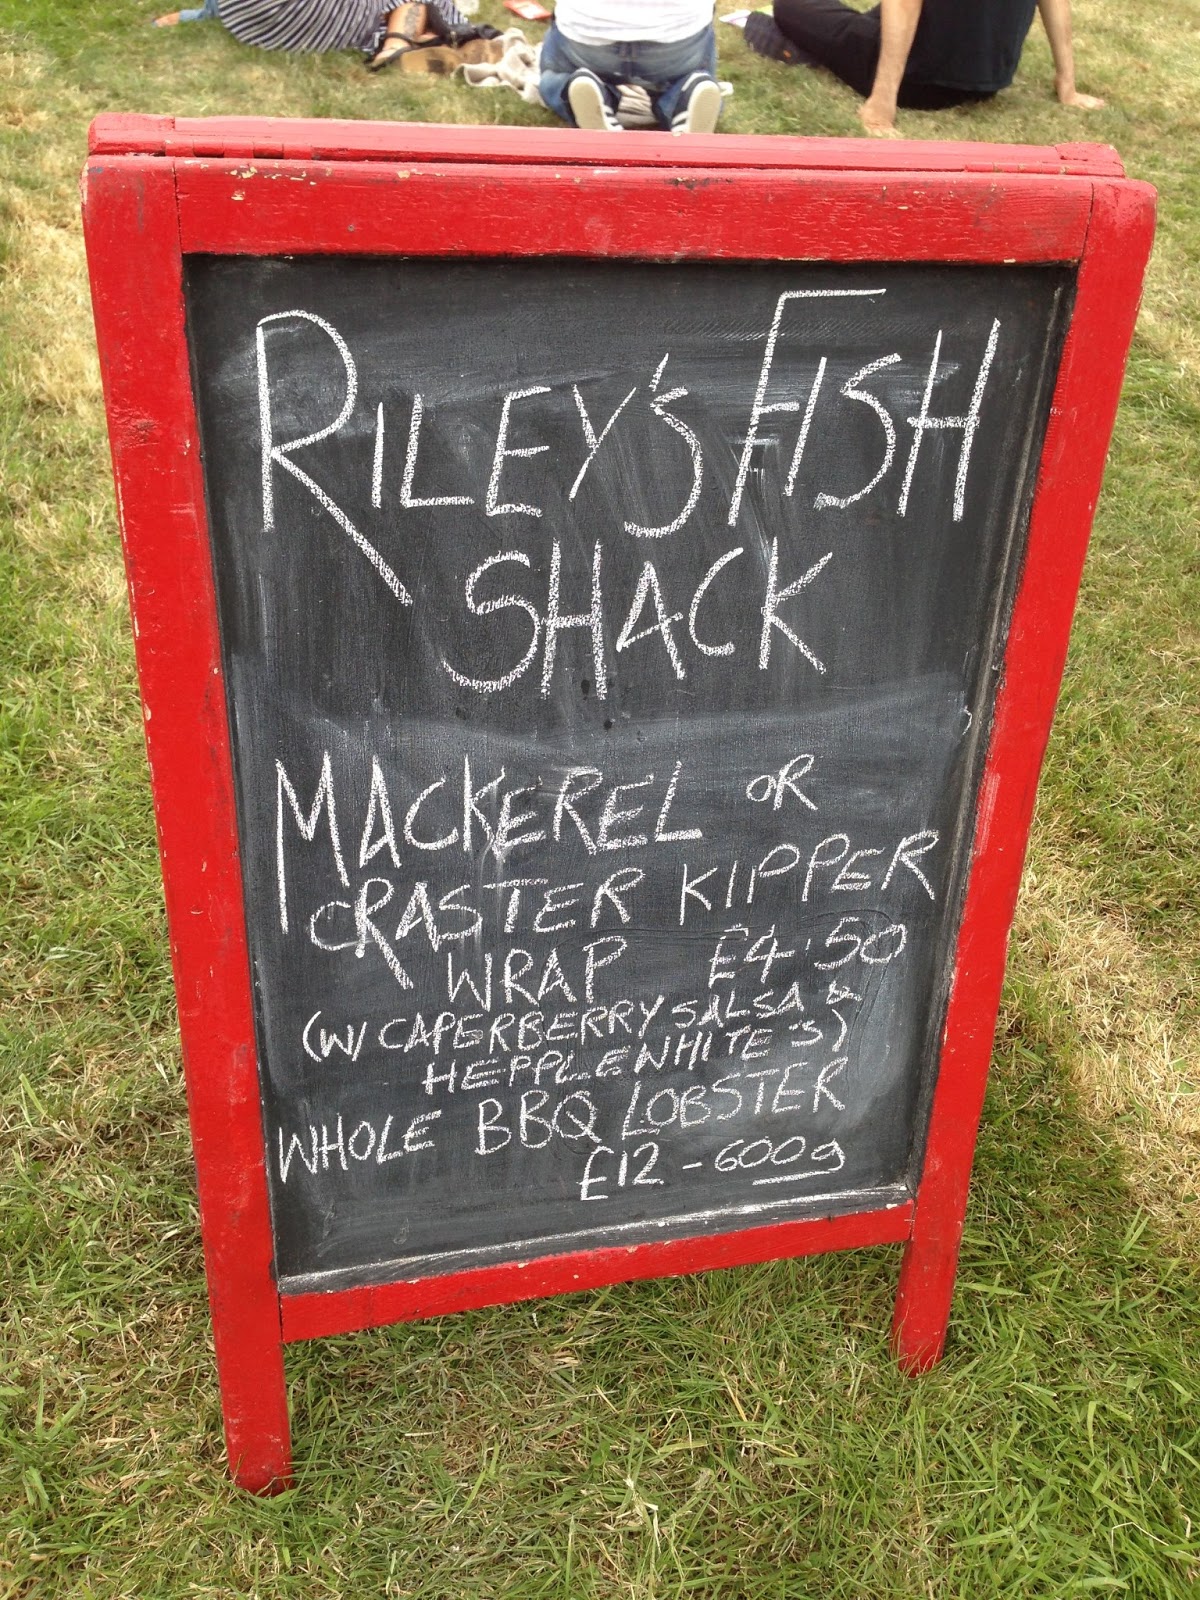 RILEY'S FISH
SHACK
MACKEREL OR
CRASTER KIPPER
WRAP £4.50
(W/ CAPERBERRY SALSA &
HEPPLEWHITE'S)
WHOLE BBQ LOBSTER
£12 - 600g